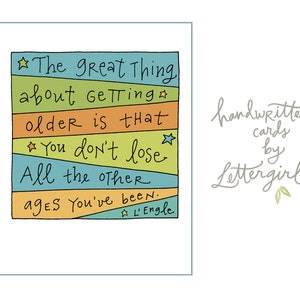 The great thing
about getting
older is that
you don't lose
All the other
ages you've been.
L'Engle
handwritten
cards
by
Lettergirl